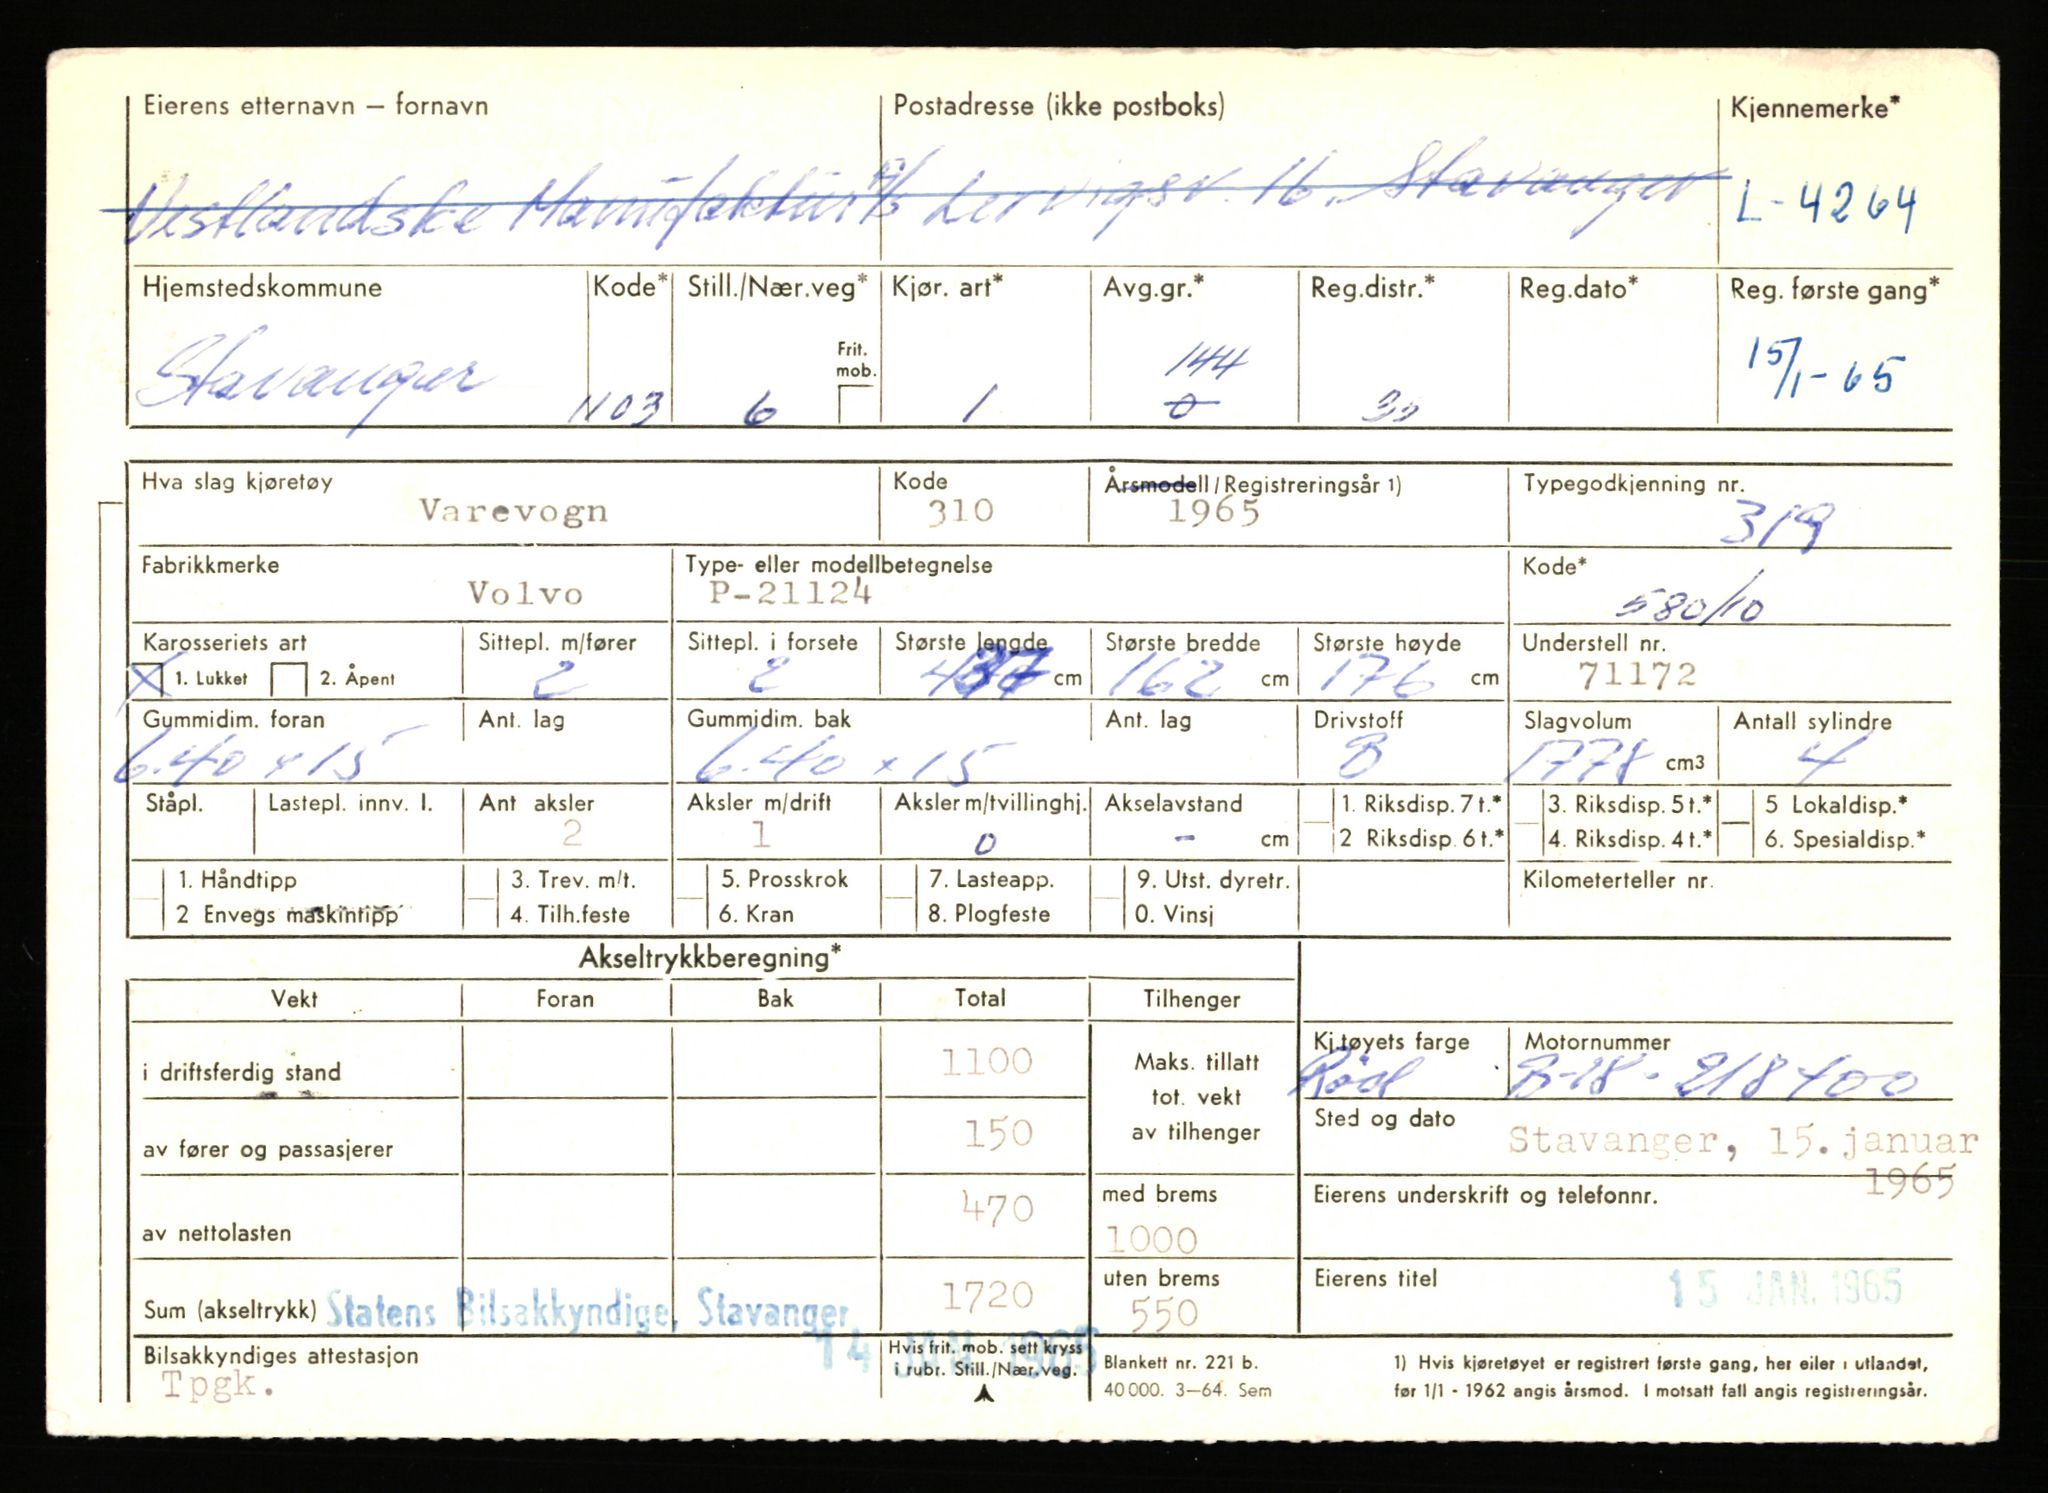 Eierens etternavn – fornavn Postadresse (ikke postboks) Kjennemerke*
Vestlandske Manufaktur A/S Lervigsv. 16. Stavanger L-4264
Hjemstedskommune Kode* Still./Nær.veg* Kjør. art* Avg.gr.* Reg.distr.* Reg.dato* Reg. første gang*
Frit. mob.
144
Stavanger 1103 6 1 0 15/1-65
Hva slag kjøretøy Kode Årsmodell/Registreringsår 1) Typegodkjenning nr.
Varevogn 310 1965 319
Fabrikkmerke Type- eller modellbetegnelse Kode*
Volvo P-21124 580/10
Karosseriets art Sittepl. m/fører Sittepl. i forsete Største lengde Største bredde Største høyde Understell nr.
X 1. Lukket 2. Åpent 2 2 cm 162 cm 176 cm 71172
Gummidim. foran Ant. lag Gummidim. bak Ant. lag Drivstoff Slagvolum Antall sylindre
6.40 x 15 6.40 x 15 B 1778 cm3 4
Ståpl. Lastepl. innv. l. Ant aksler Aksler m/drift Aksler m/tvillinghj. Akselavstand 1. Riksdisp. 7 t.* 3. Riksdisp. 5 t.* 5 Lokaldisp.*
2 1 0 - cm 2 Riksdisp. 6 t.* 4. Riksdisp. 4 t.* 6. Spesialdisp.*
1. Håndtipp 3. Trev. m/t. 5. Prosskrok 7. Lasteapp. 9. Utst. dyretr. Kilometerteller nr.
2 Envegs maskintipp 4. Tilh.feste 6. Kran 8. Plogfeste 0. Vinsj
Akseltrykkberegning*
Vekt Foran Bak Total Tilhenger
i driftsferdig stand 1100 Maks. tillatt tot. vekt av tilhenger
Kj.tøyets farge Motornummer
Rød B-18 - 218400
av fører og passasjerer 150
Sted og dato Stavanger, 15. januar
1965
av nettolasten 470 med brems 1000
Eierens underskrift og telefonnr.
Sum (akseltrykk) 1720 uten brems 550
Eierens titel 15 JAN. 1965
Statens Bilsakkyndige, Stavanger
14 JAN 1965
Bilsakkyndiges attestasjon
Tpgk.
Hvis frit. mob. sett kryss
i rubr. Still./Nær.veg.
Blankett nr. 221 b.
40 000. 3–64. Sem
1) Hvis kjøretøyet er registrert første gang, her eller i utlandet,
før 1/1 - 1962 angis årsmod. I motsatt fall angis registreringsår.